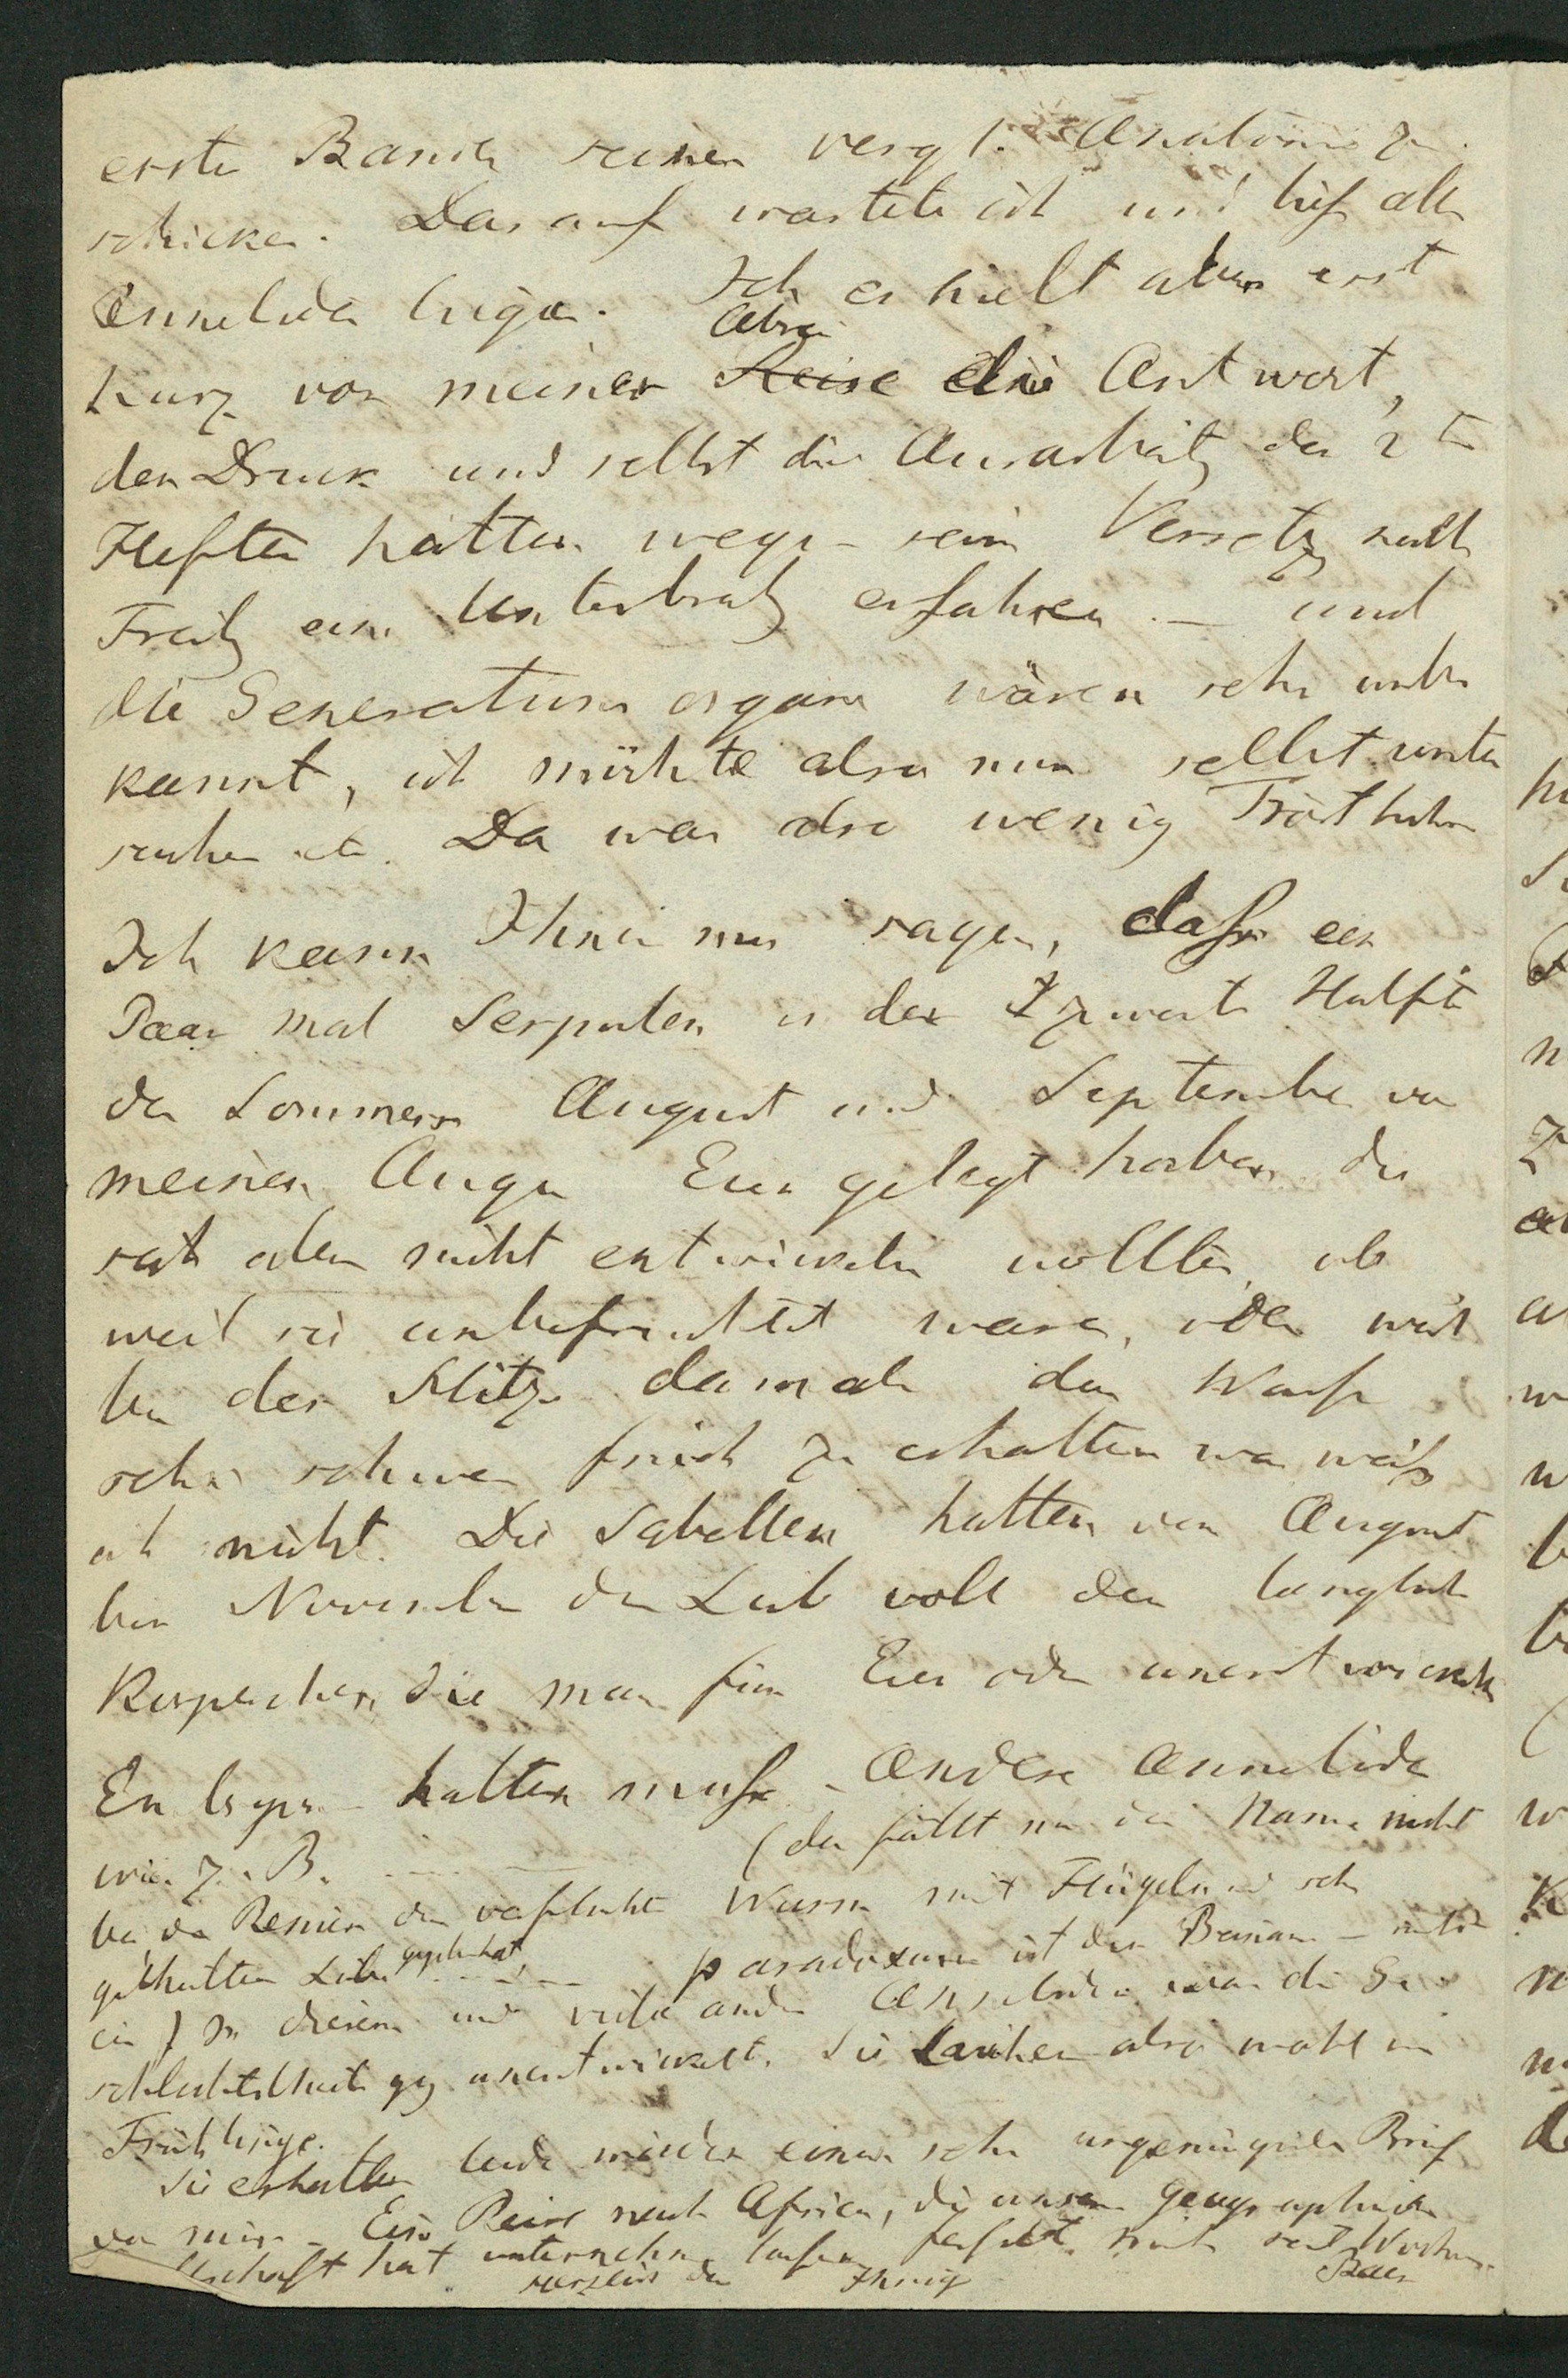 erste Band seiner vergl. Anatomie zu
schicken. Darauf wartete ich und ließ alle
Anneliden liegen. Ich erhielt aber erst
kurz vor meiner Abrei Reise die Antwort,
der Druck und selbst die Ausarbeitg des 2ten
Heftes hätten wegen seiner Versetzg nach
Freibg eine Unterbrechg erfahren. — und
die Generationsorgane wären sehr unbe
kannt, ich möchte also nun selbst unter
suchen etc. Da war also wenig Trost
Ich kann Ihnen nur sagen, daß ein
Paar mal Serpulen in der zweiten Hälfte
des Sommers August und September vor
meinen Augen Eier gelegt haben die
sich aber nicht entwickeln wollten, ob
weil sie unbefruchtet waren, oder weil
bei der Hitze damals das Wasser
sehr schwer frisch zu erhalten war weiß
ich nicht. Die Sabellen hatten von August
bis November den Leib voll der länglichen
Körperchen, die man für Eier oder unentwickelte
halten muß. Andere Anneliden
wie z. B. (da fällt mir der Name nicht
bei den Renier dem verfluchten Wurm mit Flügeln und sehr
getheilten Leibe gegeben hat, paradoxum ist der Beiname — 
ein) In diesem und vielen andern Anneliden waren die Ge
schlechtstheile ganz unentwickelt. Sie laichen also wohl im
Frühlinge.
Sie erhalten leider wieder einen sehr ungenügenden Brief
von mir. Eine Reise nach Africa, die unsere geographische
llschaft hat unternehmen lassen, mich seit Wochen.
der Ihrige Baer